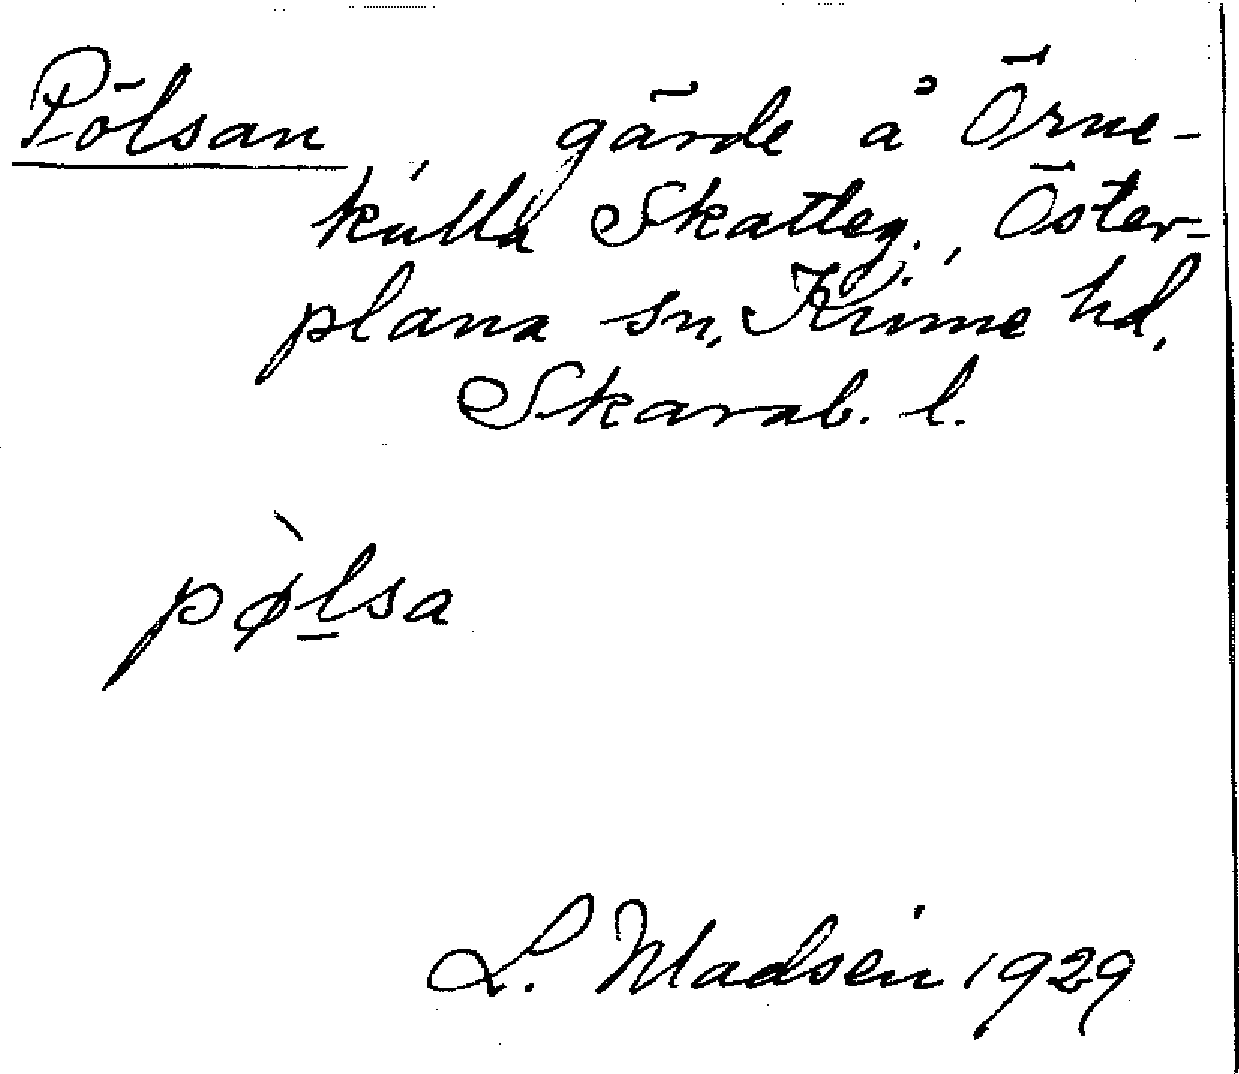 Pölsan, gärde å Örne-
kulla Skatteg., Öster-
plana sn, Kinne hd,
Skarab. l.
pø̀l̠sa
L. Madsén 1929